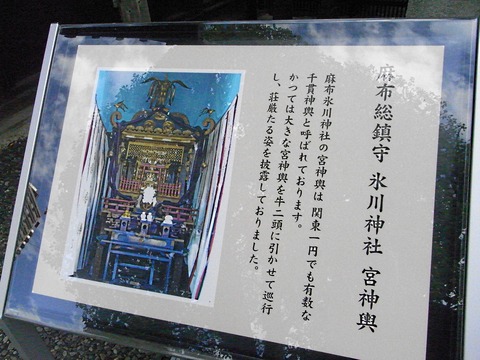 麻布総鎮守 氷川神社 宮神輿
麻布氷川神社の宮神輿は 関東一円でも有数な
千貫神輿と呼ばれております。
かつては大きな宮神輿を牛二頭に引かせて巡行
し、荘厳たる姿を披露しておりました。